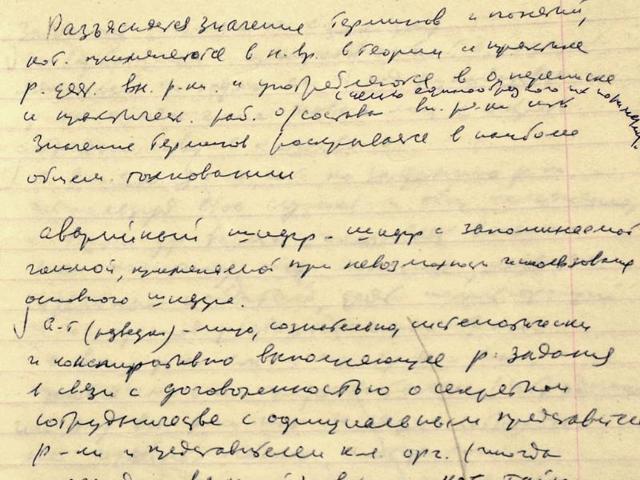 Разъясняется значение терминов и понятий,
кот. применяются в н. вр. в теории и практике
р. деят. вн. р-ки и употребляются в оп. переписке
с целью единообразного их понимания
и практическ. раб. о/состава вн. р-ки
Значение терминов раскрывается в наиболее
общем толковании
Аварийный шифр - шифр с запоминаемой
гаммой, применяемой при невозможности использования
основного шифра.
А-т (разведки) - лицо, сознательно, систематически
и конспиративно выполняющее р. задания
в связи с договоренностью о секретном
сотрудничестве с официальным представител
р-ки и представителем к-л. орг. (иногда